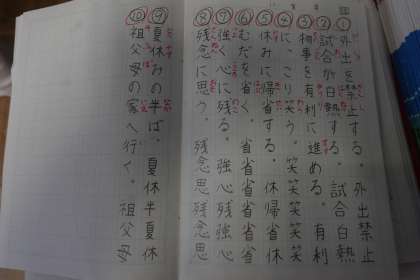 ①外出を禁止する。外出禁止
②試合が白熱する。試合白熱
③相事を有利に進める。有利
④にっこり笑う。笑笑笑笑
⑤休みに帰省する。休帰省休
⑥むだを省く。省省省省省
⑦強く心に残る。強心残強心
⑧残念に思う。残念思残念思
⑨夏休みの半ば。夏休半夏休
⑩祖父母の家へ行く。祖父母